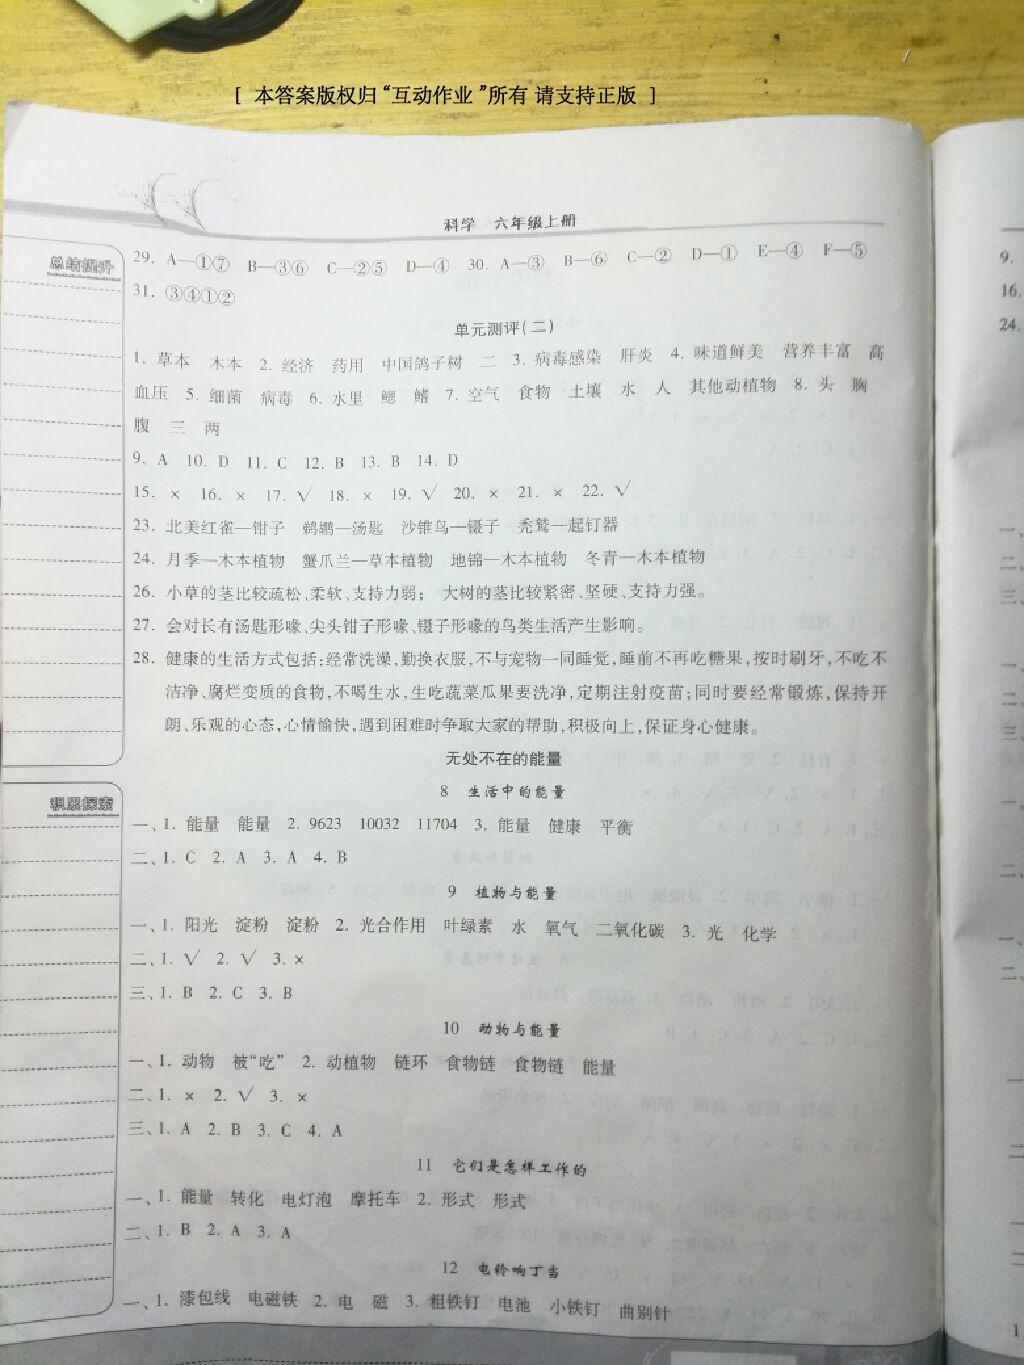 [ 本答案版权归“互动作业”所有 请支持正版 ]
科学 六年级上册
总结提升
29. A—①⑦ B—③⑥ C—②⑤ D—④ 30. A—③ B—⑥ C—② D—① E—④ F—⑤
31. ③④①②
单元测评(二)
1. 草本 木本 2. 经济 药用 中国鸽子树 二 3. 病毒感染 肝炎 4. 味道鲜美 营养丰富 高
血压 5. 细菌 病毒 6. 水里 鳃 鳍 7. 空气 食物 土壤 水 人 其他动植物 8. 头 胸
腹 三 两
9. A 10. D 11. C 12. B 13. B 14. D
15. × 16. × 17. √ 18. × 19. √ 20. × 21. × 22. √
23. 北美红雀—钳子 鹈鹕—汤匙 沙锥鸟—镊子 秃鹫—起钉器
24. 月季—木本植物 蟹爪兰—草本植物 地锦—木本植物 冬青—木本植物
26. 小草的茎比较疏松、柔软、支持力弱; 大树的茎比较紧密、坚硬、支持力强。
27. 会对长有汤匙形喙、尖头钳子形喙、镊子形喙的鸟类生活产生影响。
28. 健康的生活方式包括:经常洗澡,勤换衣服,不与宠物一同睡觉,睡前不再吃糖果,按时刷牙,不吃不
洁净、腐烂变质的食物,不喝生水,生吃蔬菜瓜果要洗净,定期注射疫苗;同时要经常锻炼,保持开
朗、乐观的心态,心情愉快,遇到困难时争取大家的帮助,积极向上,保证身心健康。
无处不在的能量
8 生活中的能量
积累探索
一、1. 能量 能量 2. 9623 10032 11704 3. 能量 健康 平衡
二、1. C 2. A 3. A 4. B
9 植物与能量
一、1. 阳光 淀粉 淀粉 2. 光合作用 叶绿素 水 氧气 二氧化碳 3. 光 化学
二、1. √ 2. √ 3. ×
三、1. B 2. C 3. B
10 动物与能量
一、1. 动物 被“吃” 2. 动植物 链环 食物链 食物链 能量
二、1. × 2. √ 3. ×
三、1. A 2. B 3. C 4. A
11 它们是怎样工作的
一、1. 能量 转化 电灯泡 摩托车 2. 形式 形式
二、1. B 2. A 3. A
12 电铃响丁当
一、1. 漆包线 电磁铁 2. 电 磁 3. 粗铁钉 电池 小铁钉 曲别针
9.
16.
24.